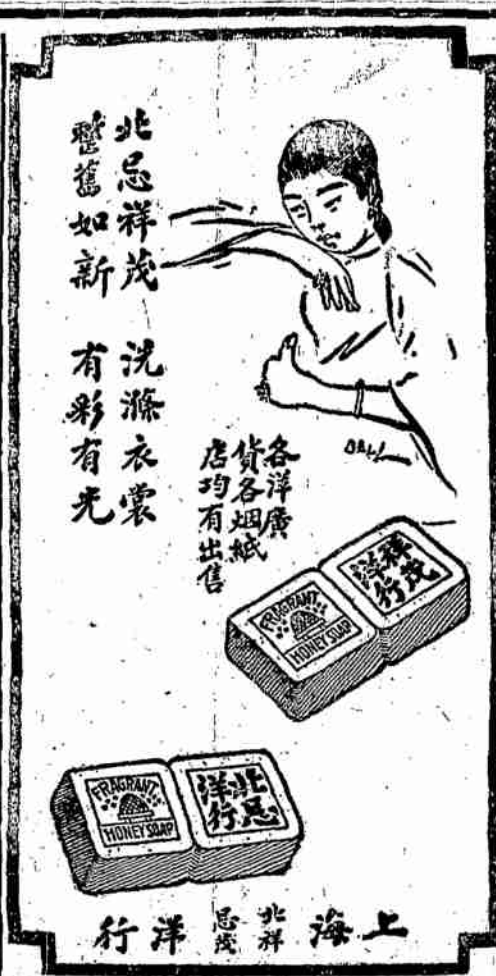 北忌祥茂 洗滌衣裳
整舊如新 有彩有光
各洋廣
貨各烟紙
店均有出售
FRAGRANT
HONEY SOAP
祥茂
洋行
FRAGRANT
HONEY SOAP
北忌
洋行
上海 北忌 祥茂 洋行